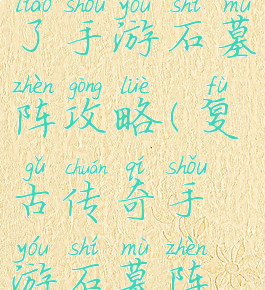 liǎo shǒu yóu shí mù
了手游石墓
zhèn gōng lüè fù
阵攻略(复
gǔ chuán qí shǒu
古传奇手
yóu shí mù zhèn
游石墓阵